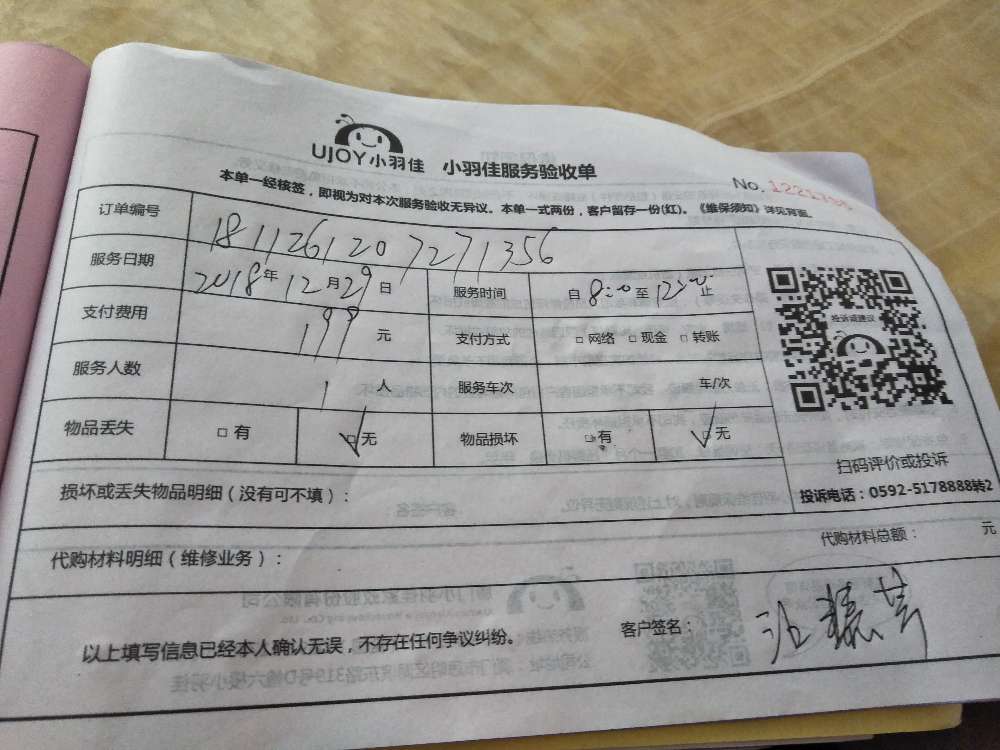 UJOY小羽佳 小羽佳服务验收单
No.
本单一经核签，即视为对本次服务验收无异议。本单一式两份，客户留存一份(红)。《维保须知》详见背面。
订单编号 1811261207271356
服务日期 2018年12月29日 服务时间 自8:00至12:00止
投诉或建议
支付费用 199元 支付方式 □网络 □现金 □转账
服务人数 1人 服务车次 车/次
物品丢失 □有 ☑无 物品损坏 □有 ☑无
扫码评价或投诉
投诉电话：0592-5178888转2
损坏或丢失物品明细（没有可不填）：
代购材料明细（维修业务）： 代购材料总额： 元
以上填写信息已经本人确认无误，不存在任何争议纠纷。 客户签名：